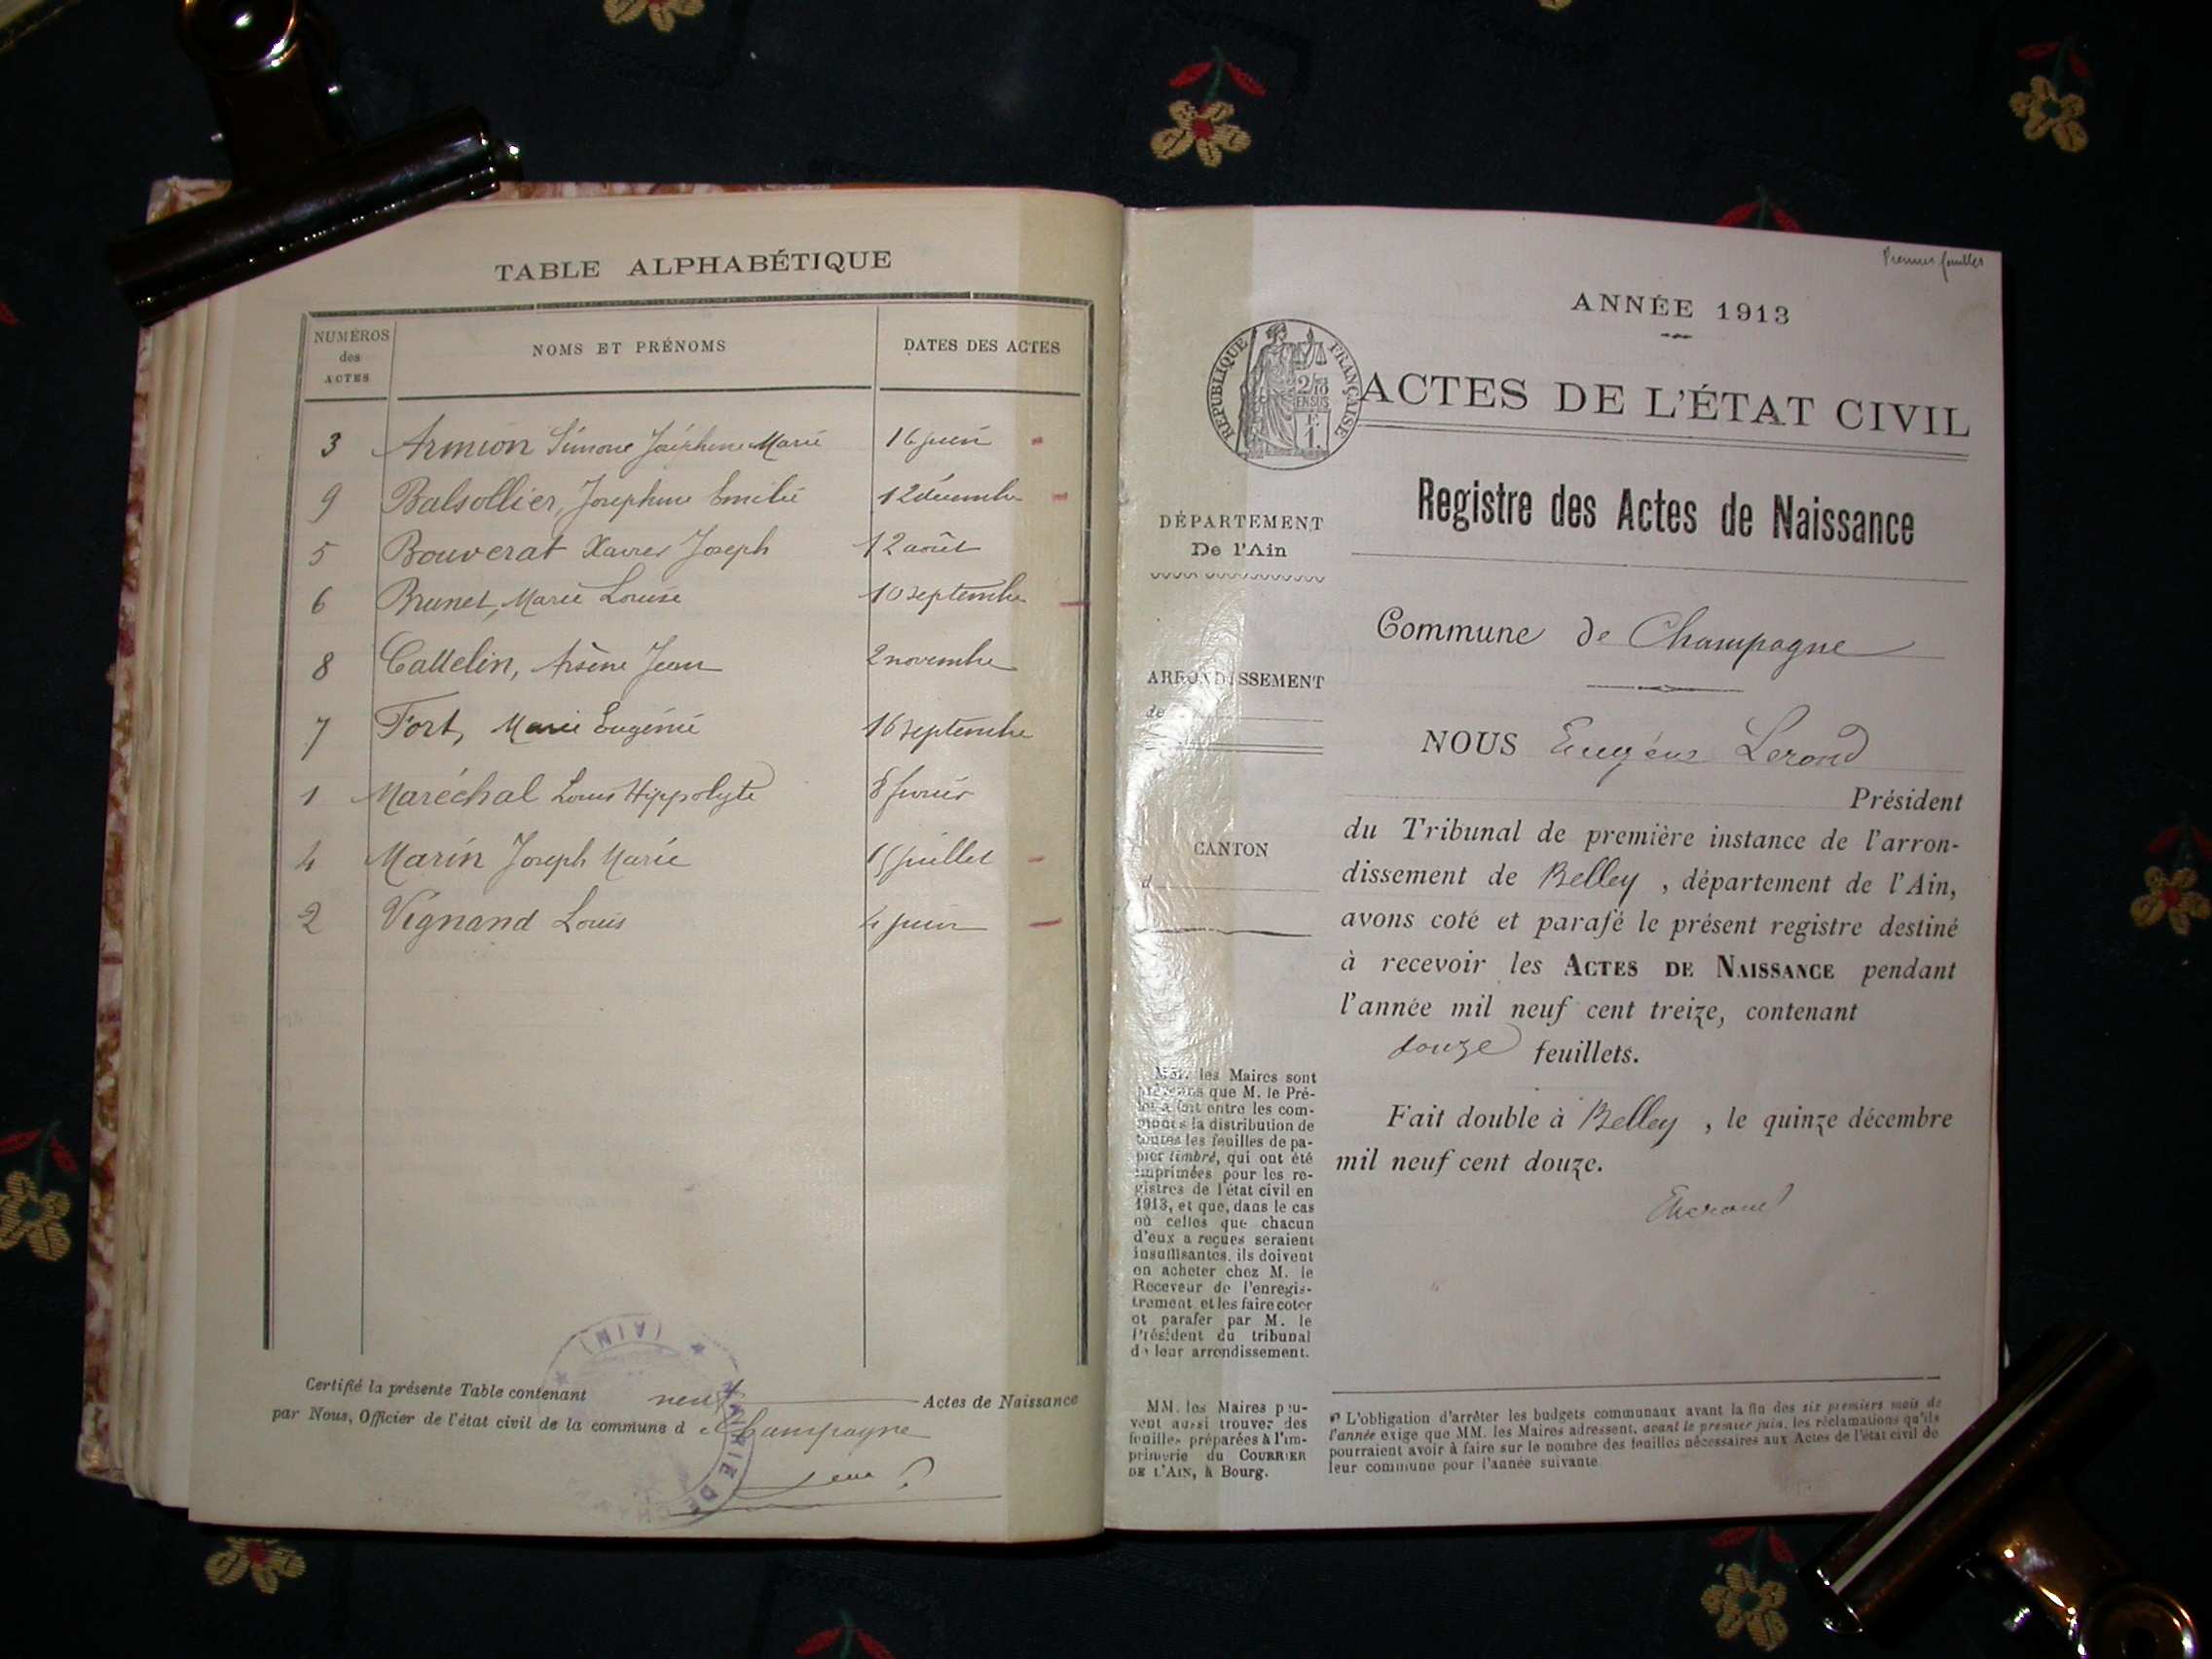 TABLE ALPHABÉTIQUE
NUMÉROS des ACTES
NOMS ET PRÉNOMS
DATES DES ACTES
3 Armion Simone Joséphine Marie 16 juin
9 Balsollier, Joséphine Emilie 12 décembre
5 Bouverat Xavier Joseph 12 août
6 Brunet, Marie Louise 10 septembre
8 Cattelin, Arsène Jean 2 novembre
7 Fort, Marie Eugénie 16 septembre
1 Maréchal Louis Hippolyte 8 février
4 Marin Joseph Marie 15 juillet
2 Vignand Louis 4 juin
Certifié la présente Table contenant neuf Actes de Naissance
par Nous, Officier de l'état civil de la commune de Champagne
(AIN)
MAIRIE DE
ANNÉE 1913
RÉPUBLIQUE FRANÇAISE
2/10
EN SUS
ACTES DE L'ÉTAT CIVIL
Registre des Actes de Naissance
DÉPARTEMENT
De l'Ain
ARRONDISSEMENT
de
CANTON
d
MM. les Maires sont
prévenus que M. le Pré-
fet a fait entre les com-
munes la distribution de
toutes les feuilles de pa-
pier timbré, qui ont été
imprimées pour les re-
gistres de l'état civil en
1913, et que, dans le cas
où celles que chacun
d'eux a reçues seraient
insuffisantes, ils doivent
en acheter chez M. le
Receveur de l'enregis-
trement et les faire coter
et parafer par M. le
Président du tribunal
de leur arrondissement.
MM. les Maires peu-
vent aussi trouver des
feuilles préparées à l'im-
primerie du COURRIER
DE L'AIN, à Bourg.
Commune de Champagne
NOUS Eugène Lerond
Président
du Tribunal de première instance de l'arron-
dissement de Belley, département de l'Ain,
avons coté et parafé le présent registre destiné
à recevoir les ACTES DE NAISSANCE pendant
l'année mil neuf cent treize, contenant
douze feuillets.
Fait double à Belley, le quinze décembre
mil neuf cent douze.
L'obligation d'arrêter les budgets communaux avant la fin des six premiers mois de
l'année exige que MM. les Maires adressent, avant le premier juin, les réclamations qu'ils
pourraient avoir à faire sur le nombre des feuilles nécessaires aux Actes de l'état civil de
leur commune pour l'année suivante